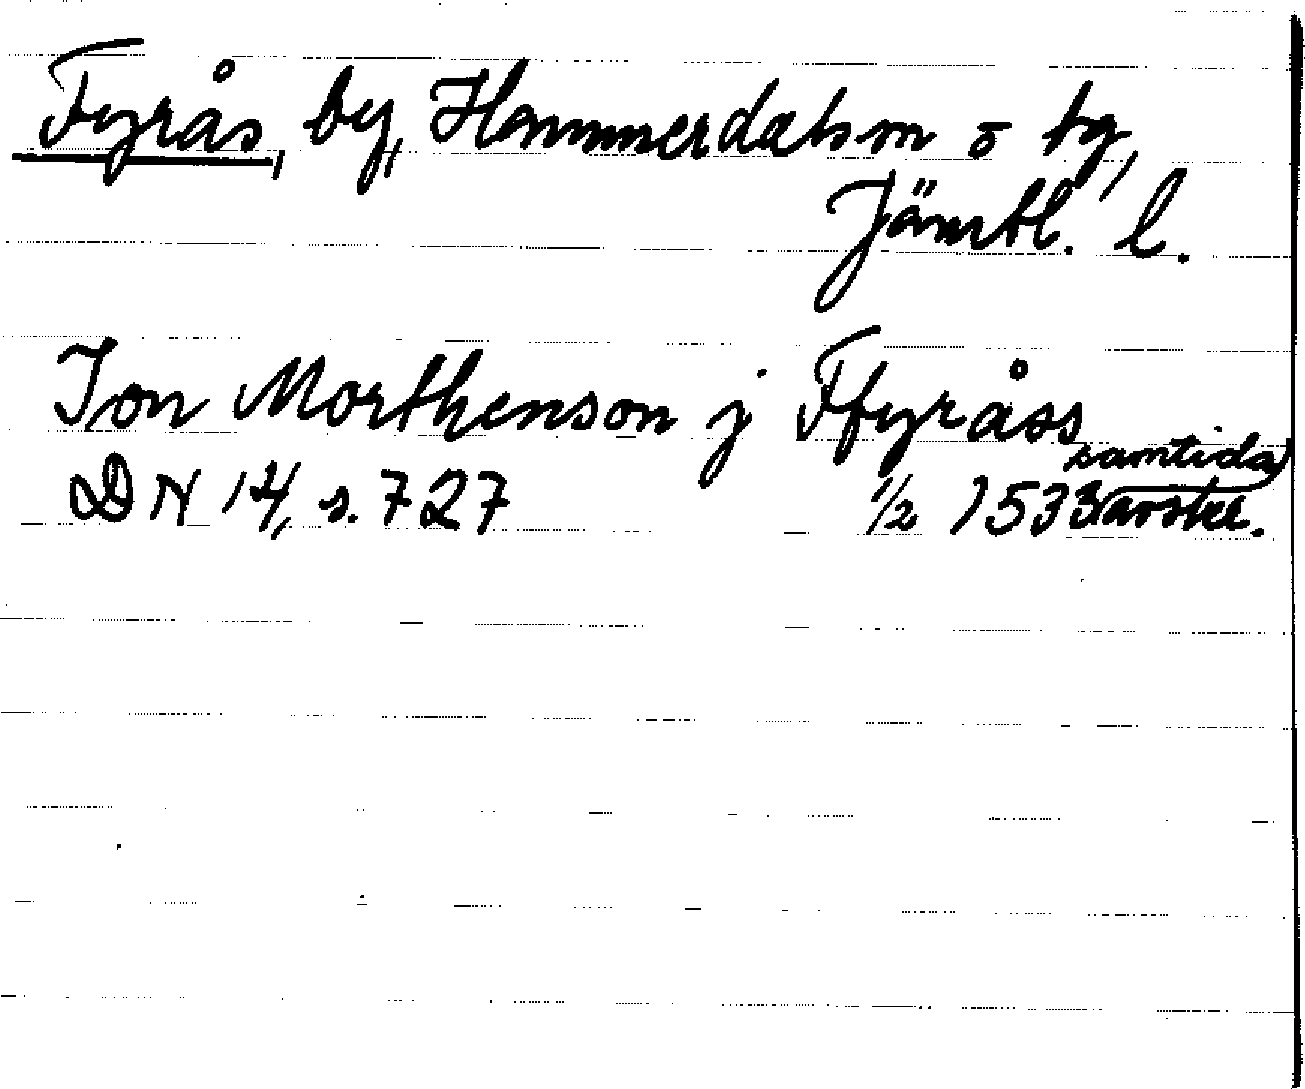 Fyrås, by, Hammerdals sn o tg,
Jämtl. l.
Jon Morthenson j Ffyråss
DN 14, s. 727 1/2 1533 samtida
avskr.